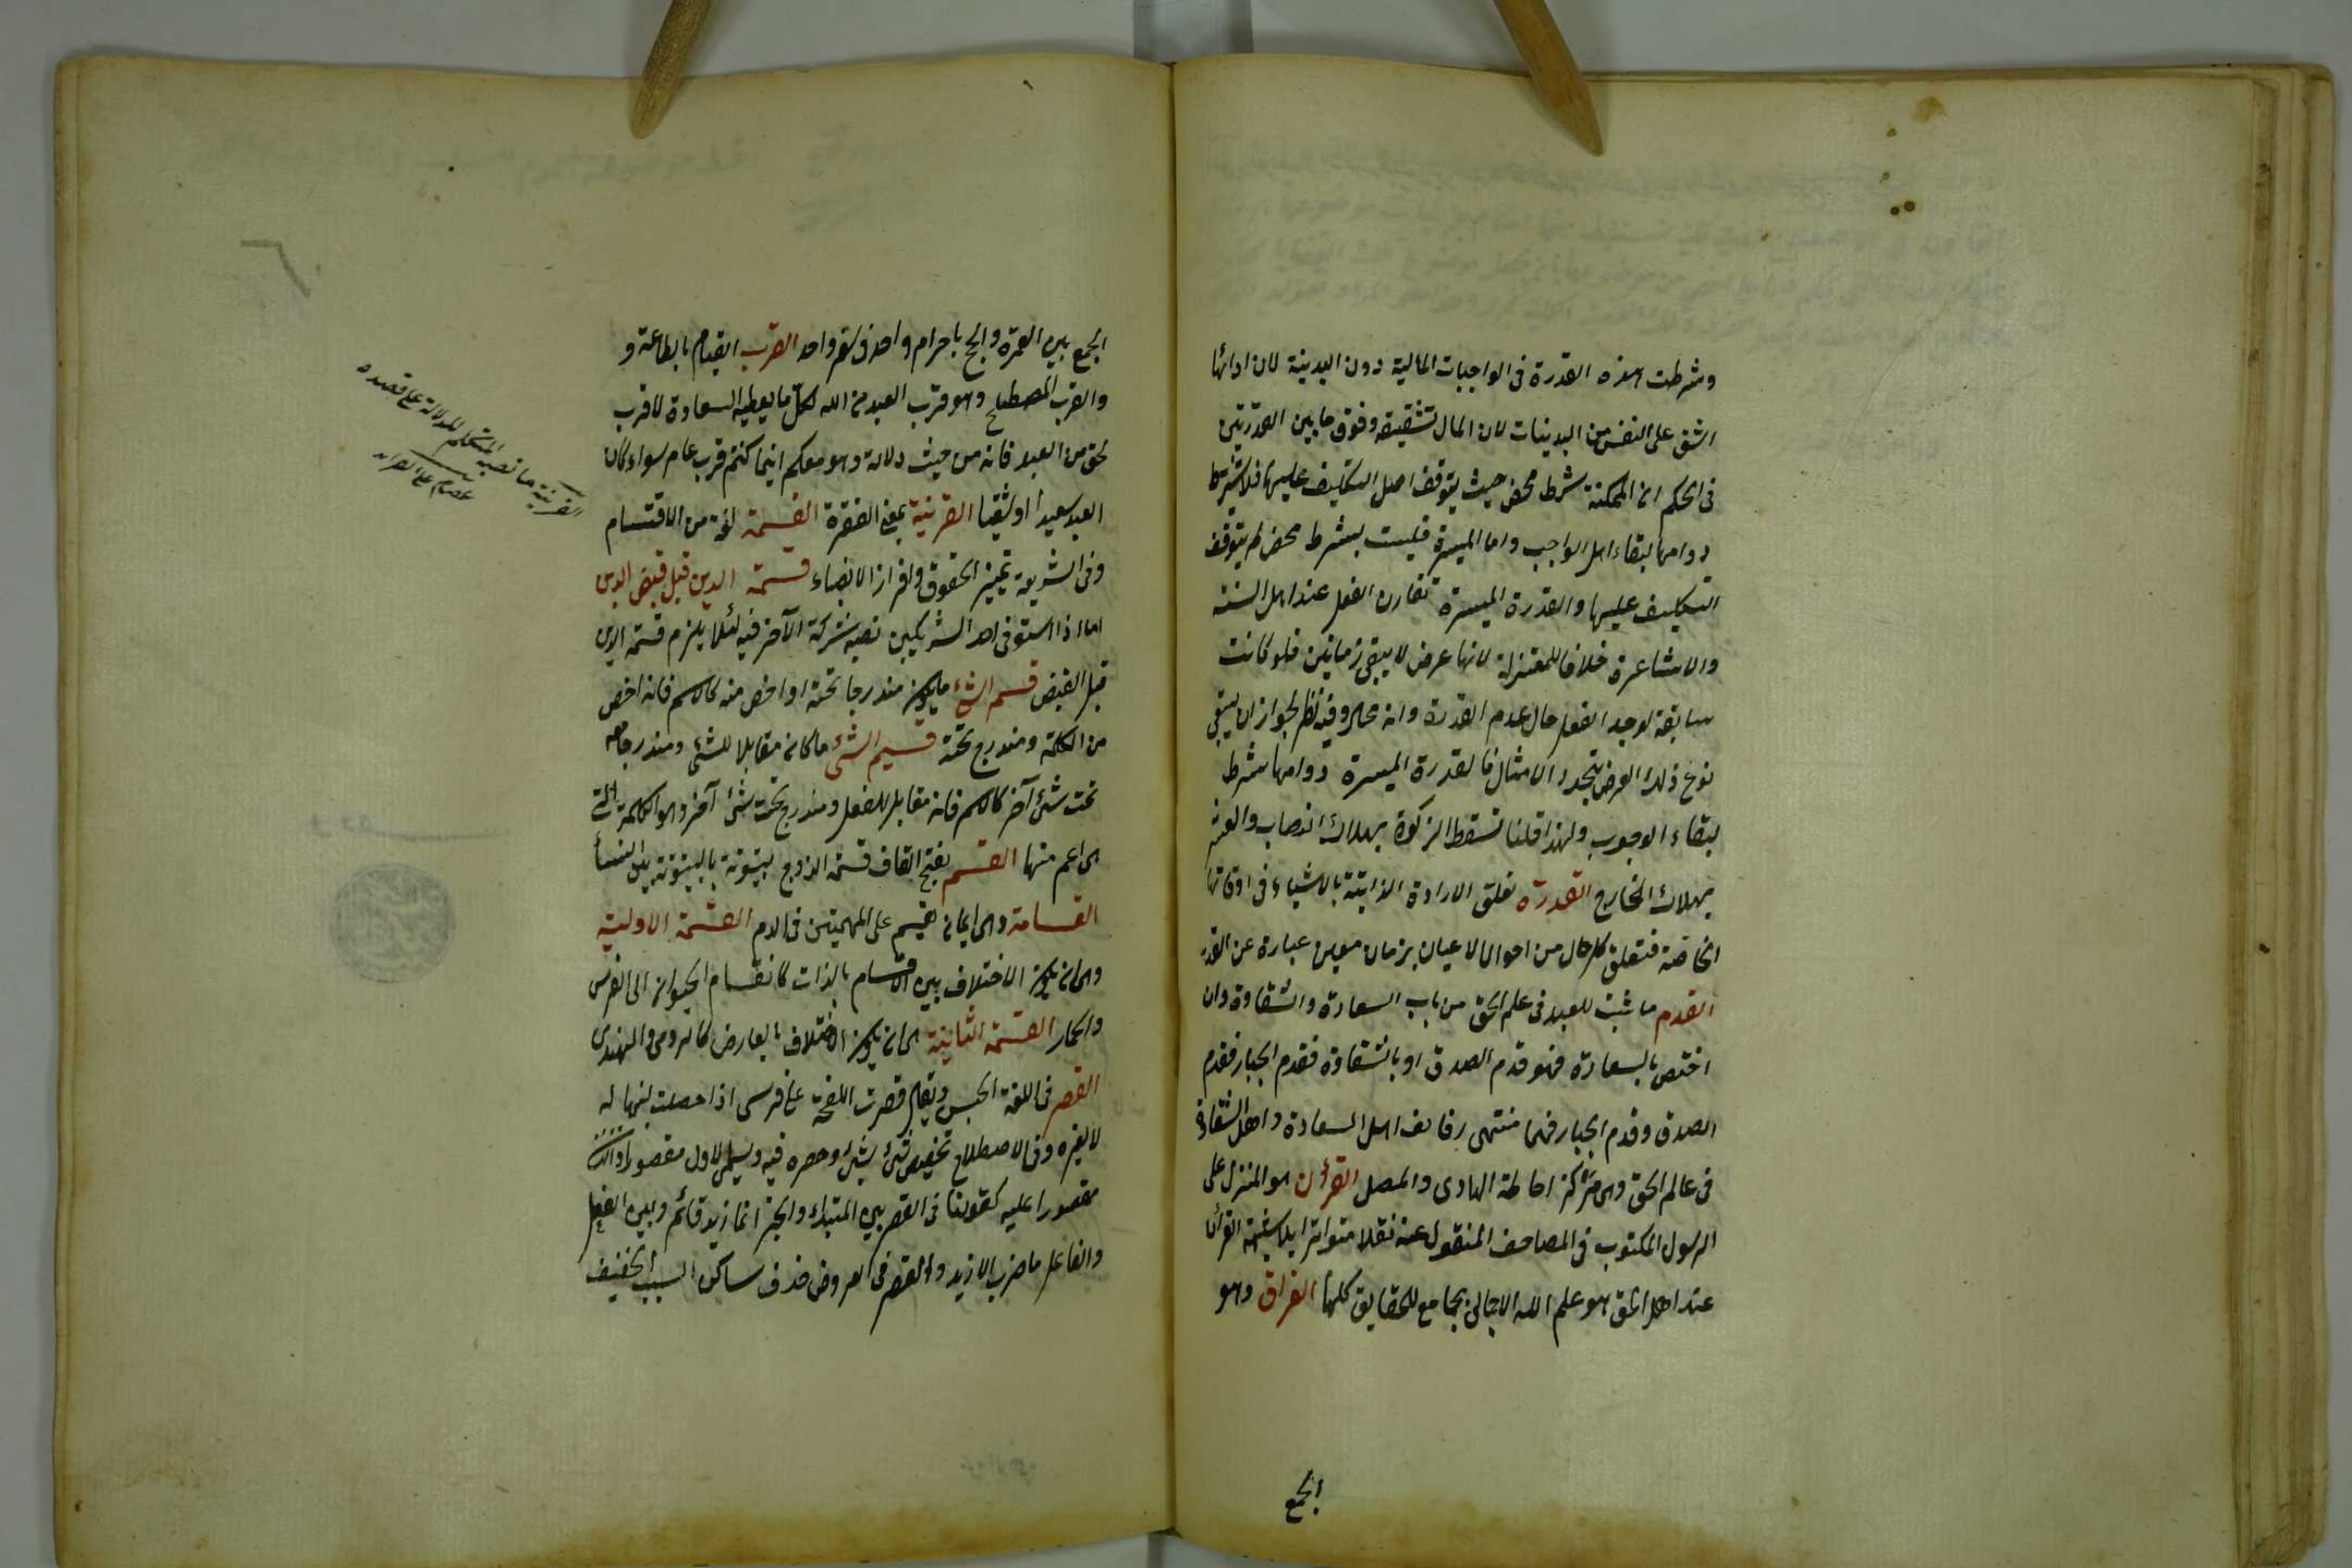 وشرطت هذه القدرة فى الواجبات المالية دون البدنية لان ادائها
اشق على النفس من البدنيات لان المال شقيقه وفرق ما بين القدرتين
فى الحكم ان الممكنة شرط محض حيث يتوقف اصل التكليف عليها فلا يشترط
دوامها لبقاء اصل الواجب واما الميسرة فليست بشرط محض لم يتوقف
التكليف عليها والقدرة الميسرة تقارن الفعل عند اهل السنه
والاشاعرة خلافا للمعتزلة لانها عرض لا يبقى زمانين فلو كانت
سابقة لوجد الفعل حال عدم القدرة وانه محال وفيه نظر لجواز ان يبقى
نوع ذلك العرض بتجدد الامثال فالقدرة الميسرة دوامها شرط
لبقاء الوجوب ولهذا قلنا تسقط الزكوة بهلاك النصاب والعشر
بهلاك الخارج القدرة تعلق الارادة الذاتية بالاشياء فى اوقاتها
الخاصة فتعلق كل حال من احوال الاعيان بزمان معين عبارة عن القدر
القدم ما ثبت للعبد فى علم الحق من باب السعادة والشقاوة وان
اختص بالسعادة فهو قدم الصدق او بالشقاوة فقدم الجبار فقدم
الصدق وقدم الجبار فهما منتهى رقايق اهل السعادة واهل الشقاوة
فى عالم الحق وهى مركز احاطة الهادى والمضل القرأن هو المنزل على
الرسول المكتوب فى المصاحف المنقول عنه نقلا متواترا بلا شبهة القرأن
عند اهل الحق هو علم الله الاجمالى الجامع للحقايق كلها القراق وهو
الجمع
الجمع بين العمرة والحج باحرام واحد فى سفر واحد القرب القيام بالطاعة و
والقرب المصطلح وهو قرب العبد من الله بكل ما يعطيه السعادة لا قرب
الحق من العبد فانه من حيث دلالة وهو معكم اينما كنتم قرب عام سواء كان
العبد سعيدا او شقيا القرينة بمعنى الفقرة القسمة لغة من الاقتسام
وفى الشريعة تمييز الحقوق وافراز الانصباء قسمة الدين قبل قبض الدين
اما اذا استوفى احد الشريكين نصيبه شركه الآخر فيه لئلا يلزم قسمة الدين
قبل القبض قسم الشئ ما يكون مندرجا تحته او اخص منه كالاسم فانه اخص
من الكلمة ومندرج تحته قسيم الشئ ما كان مقابلا للشئ ومندرجا معه
تحت شئ آخر كالاسم فانه مقابل للفعل ومندرج تحت شئ آخر وهو الكلمة التى
هى اعم منها القسم بفتح القاف قسمة الزوج بيتوتة بالبيتوتة بين النساء
القسامة وهى ايمان تقسم على المتهمين فى الدم القسمة الاولية
وهى ان يكون الاختلاف بين الاقسام بالذات كانقسام الحيوان الى الفرس
والحمار القسمة الثانية هى ان يكون الاختلاف بالعارض كالرومى والهندى
القصر فى اللغة الحبس ويقال قصرت اللقحة على فرسى اذا جعلت لبنها له
لا لغيره وفى الاصطلاح تخصيص شئ بشئ وحصره فيه ويسمى الاول مقصورا والثانى
مقصورا عليه كقولنا فى القصر بين المبتداء والخبر انما زيد قائم وبين الفعل
والفاعل ما ضرب الا زيد والقصر فى العروض حذف ساكن السبب الخفيف
القرينة ما نصبه المتكلم للدلالة على قصده
عصام على